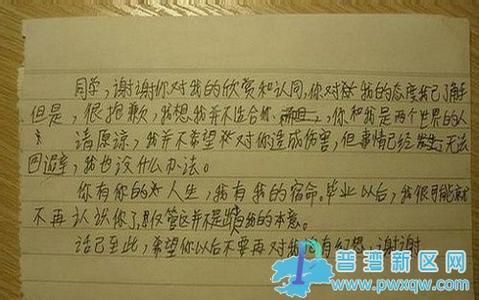 同学，谢谢你对我的欣赏和认同，你对我的态度我已了解
但是，很抱歉，我想我并不适合你，你和我是两个世界的人
请原谅，我并不希望对你造成伤害，但事情已经发生，无法
回避，我也没什么办法。
你有你的人生，我有我的宿命。毕业以后，我很可能就
不再认识你了，尽管这并不是出自我的本意。
话已至此，希望你以后不要再对我抱有幻想，谢谢
普湾新区网
www.pwxqw.com